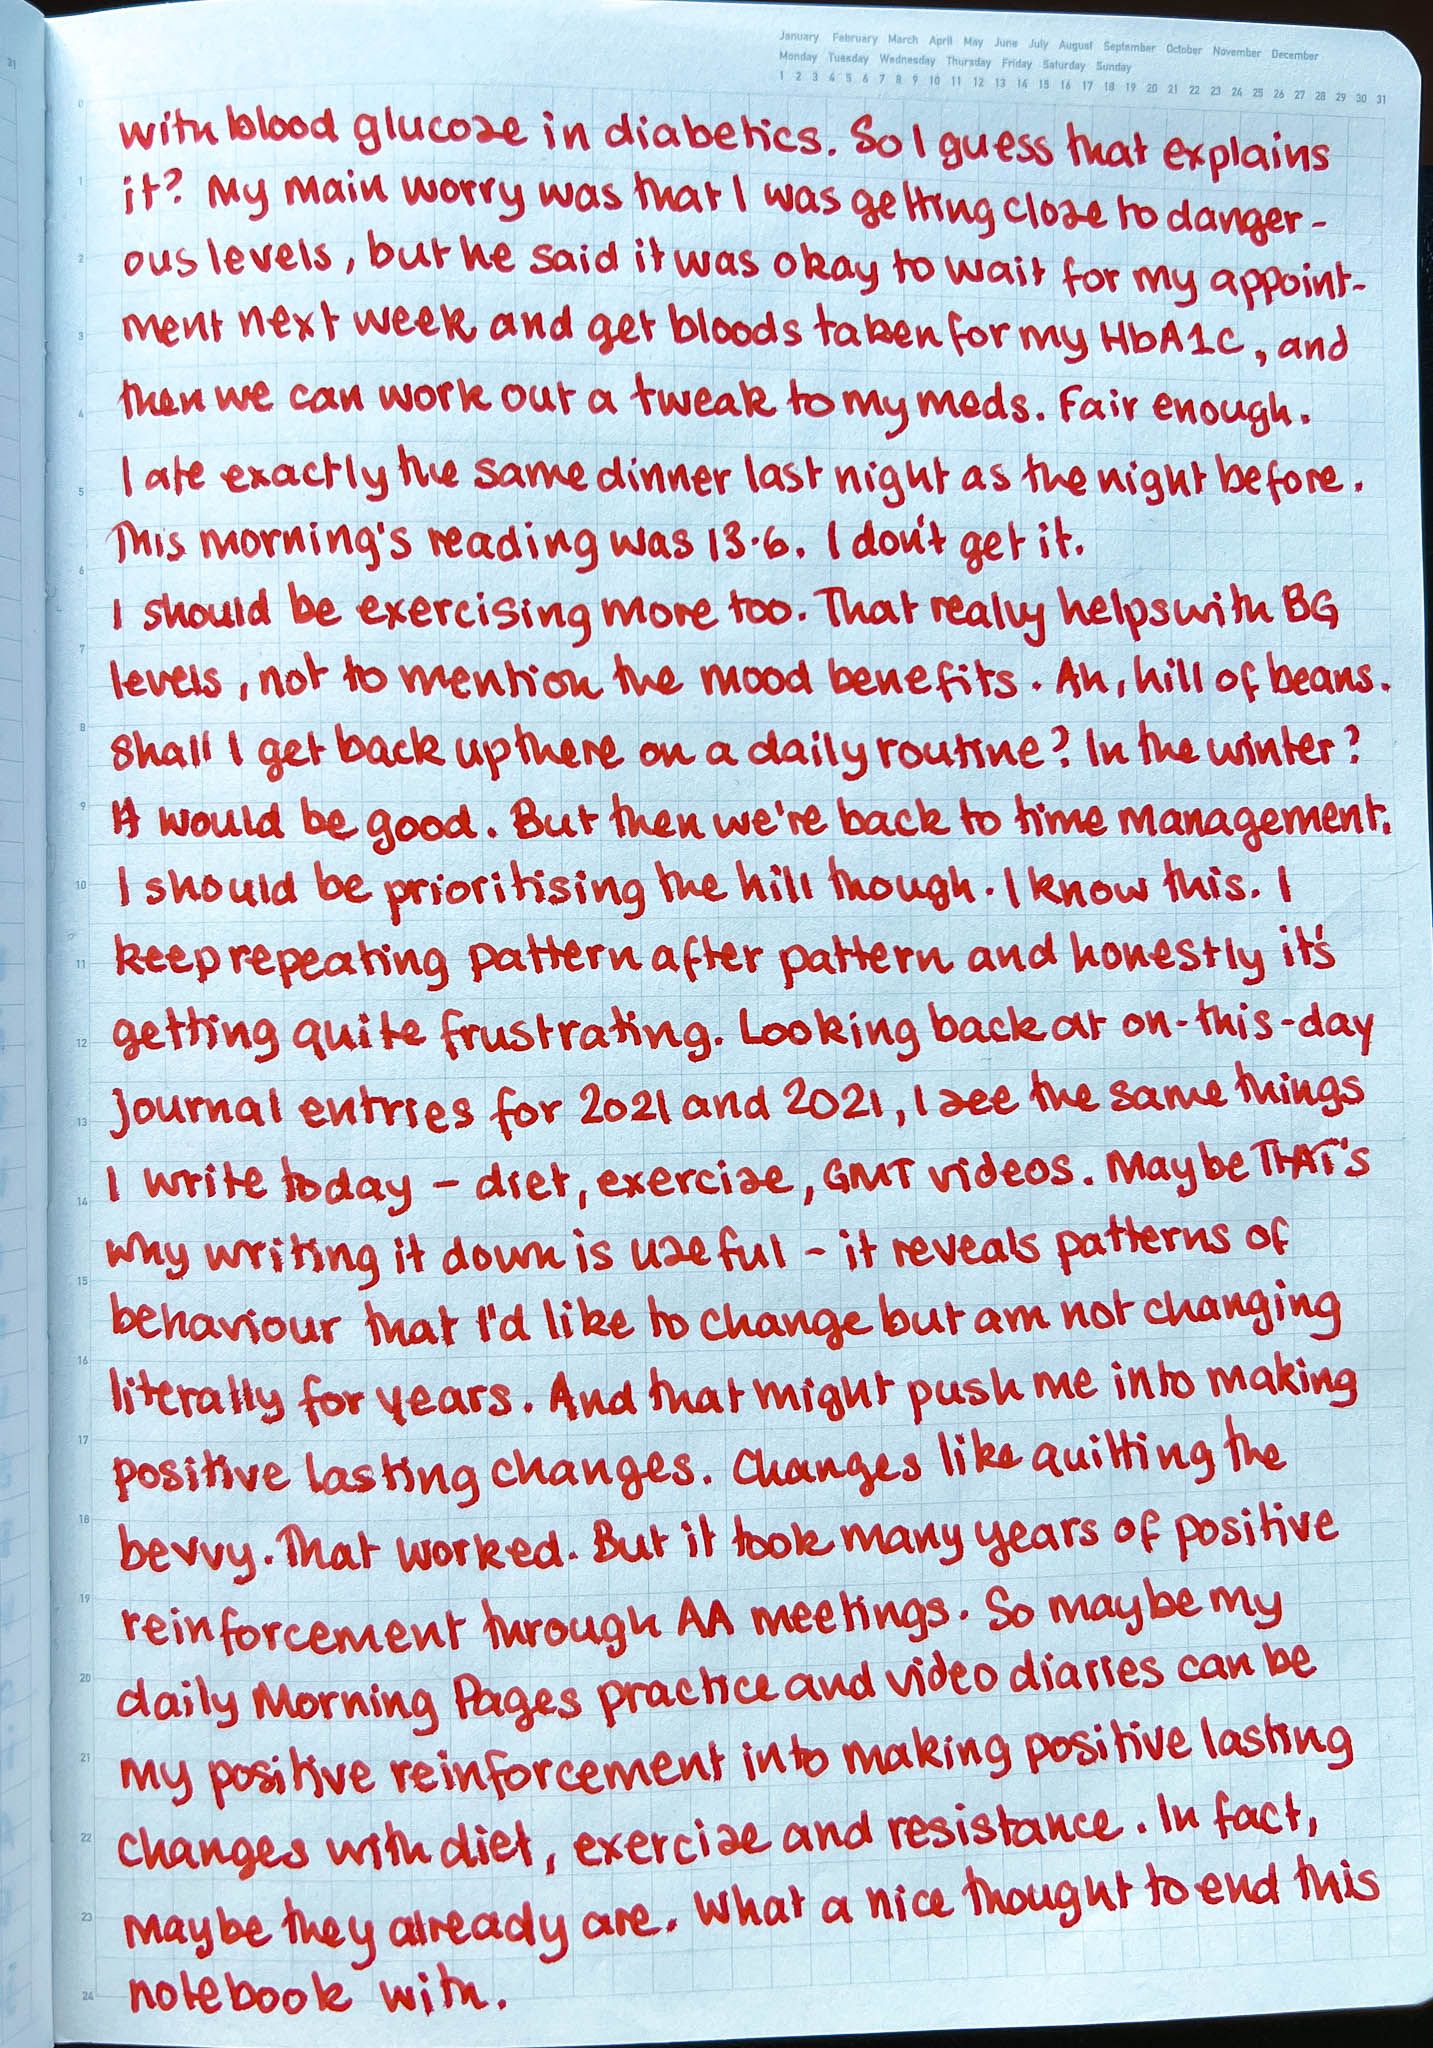 31
January February March April May June July August September October November December
Monday Tuesday Wednesday Thursday Friday Saturday Sunday
1 2 3 4 5 6 7 8 9 10 11 12 13 14 15 16 17 18 19 20 21 22 23 24 25 26 27 28 29 30 31
0
with blood glucose in diabetics. So I guess that explains
1 it? My main worry was that I was getting close to danger-
2 ous levels, but he said it was okay to wait for my appoint-
3 ment next week and get bloods taken for my HbA1c, and
4 then we can work out a tweak to my meds. Fair enough.
5 I ate exactly the same dinner last night as the night before.
6 This morning's reading was 13.6. I don't get it.
I should be exercising more too. That really helps with BG
7 levels, not to mention the mood benefits. Ah, hill of beans.
8 Shall I get back up there on a daily routine? In the winter?
9 It would be good. But then we're back to time management.
10 I should be prioritising the hill though. I know this. I
11 keep repeating pattern after pattern and honestly it's
12 getting quite frustrating. Looking back at on-this-day
13 journal entries for 2021 and 2021, I see the same things
14 I write today - diet, exercise, GMT videos. Maybe THAT's
15 why writing it down is useful - it reveals patterns of
16 behaviour that I'd like to change but am not changing
literally for years. And that might push me into making
17 positive lasting changes. Changes like quitting the
18 bevvy. That worked. But it took many years of positive
19 reinforcement through AA meetings. So maybe my
20 daily Morning Pages practice and video diaries can be
21 my positive reinforcement into making positive lasting
22 changes with diet, exercise and resistance. In fact,
23 maybe they already are. What a nice thought to end this
24 notebook with.